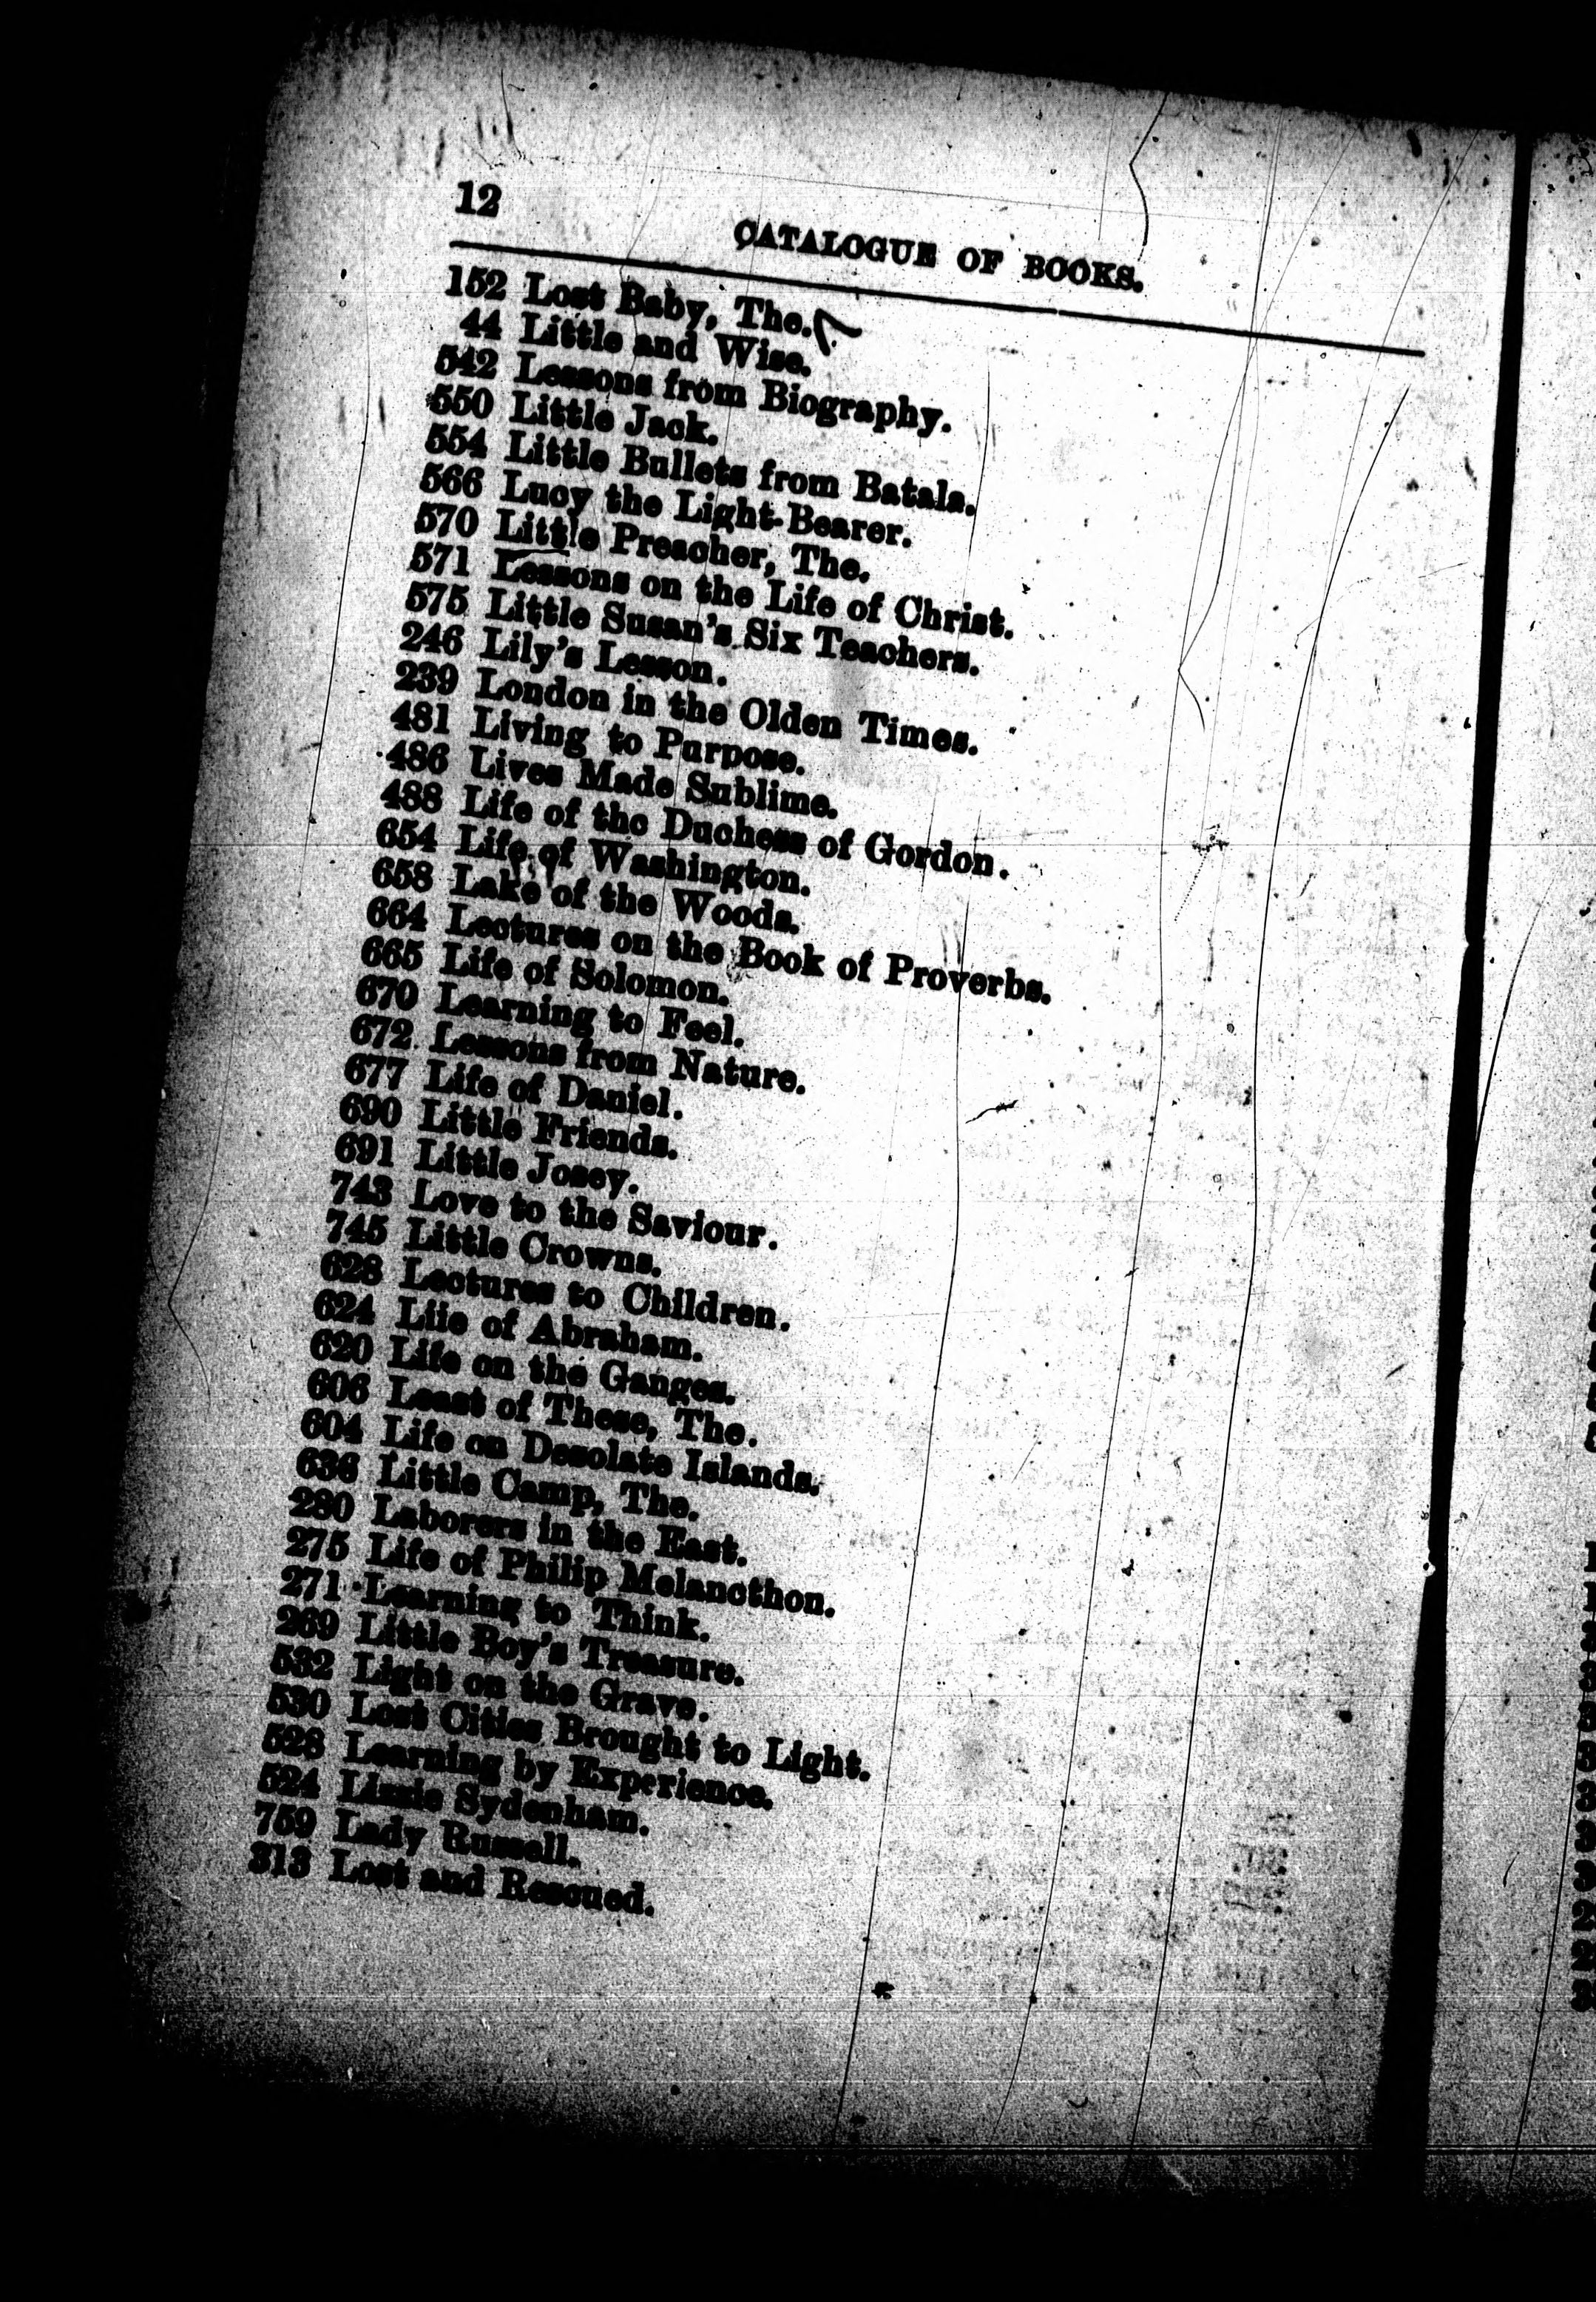 12
CATALOGUE OF BOOKS.
152 Lost Baby, The.
44 Little and Wise.
542 Lessons from Biography.
550 Little Jack.
554 Little Bullets from Batala.
566 Lucy the Light-Bearer.
570 Little Preacher, The.
571 Lessons on the Life of Christ.
575 Little Susan's Six Teachers.
246 Lily's Lesson.
239 London in the Olden Times.
481 Living to Purpose.
486 Lives Made Sublime.
488 Life of the Duchess of Gordon.
654 Life of Washington.
658 Lake of the Woods.
664 Lectures on the Book of Proverbs.
665 Life of Solomon.
670 Learning to Feel.
672 Lessons from Nature.
677 Life of Daniel.
690 Little Friends.
691 Little Josey.
743 Love to the Saviour.
745 Little Crowns.
628 Lectures to Children.
624 Liie of Abraham.
620 Life on the Ganges.
606 Least of These, The.
604 Life on Desolate Islands.
636 Little Camp, The.
280 Laborers in the East.
275 Life of Philip Melancthon.
271 Learning to Think.
269 Little Boy's Treasure.
532 Light on the Grave.
530 Lost Cities Brought to Light.
528 Learning by Experience.
524 Lizzie Sydenham.
759 Lady Russell.
313 Lost and Rescued.